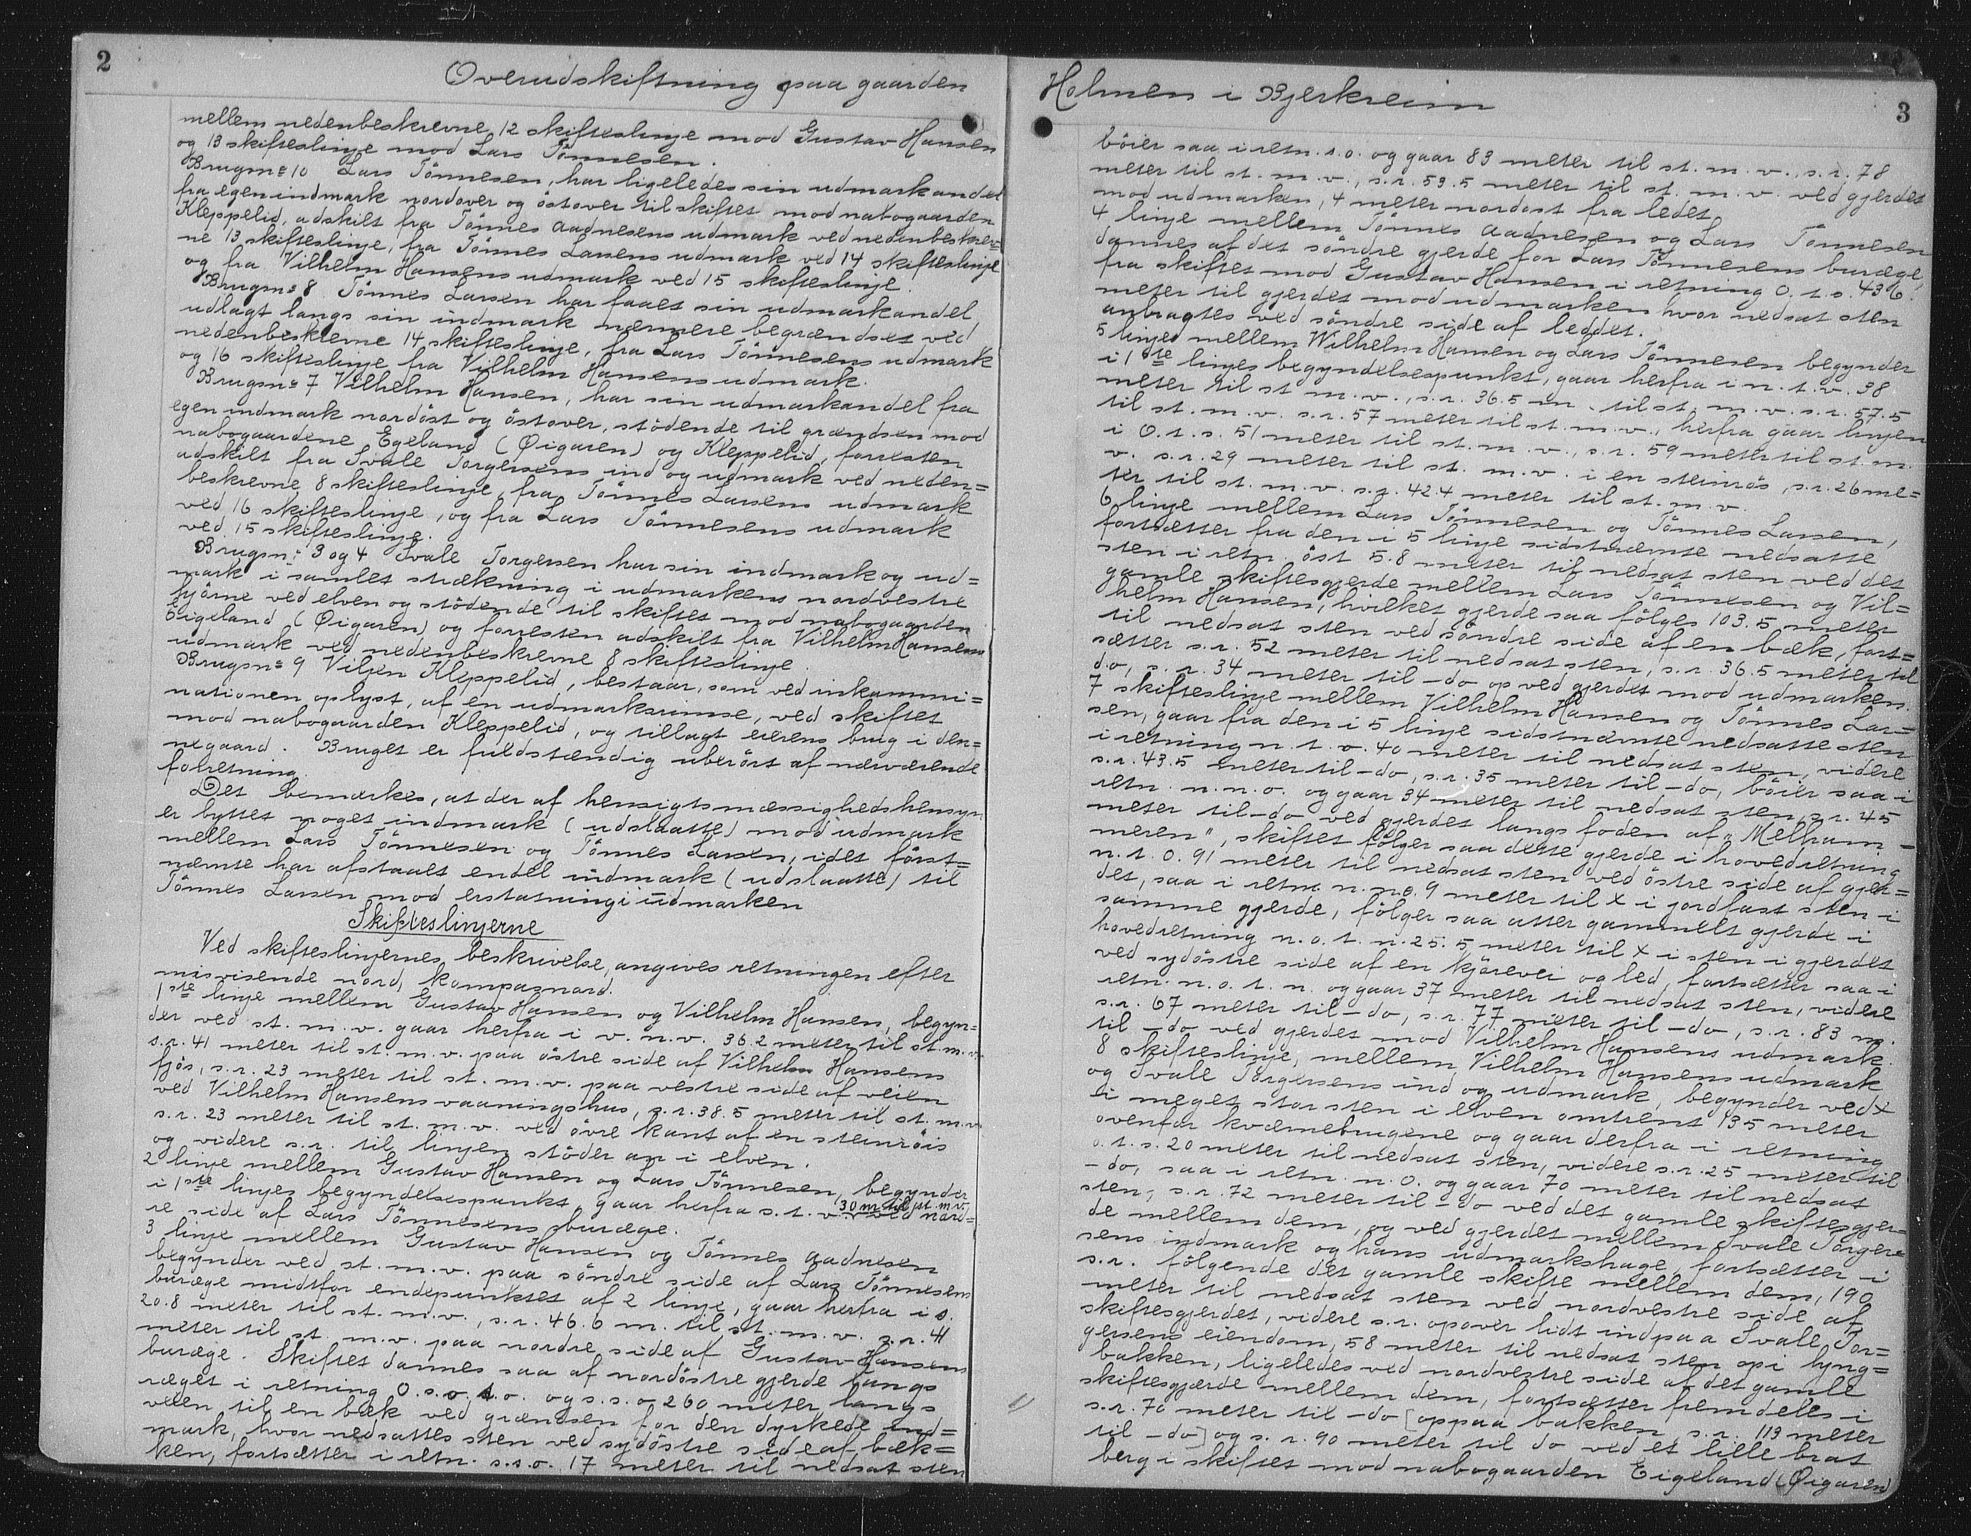 2
Overudskiftning paa gaarden
mellem nedenbeskrevne 12 skifteslinje mod Gustav Hansen
og 13 skifteslinje mod Lars Tönnesen.
Brugsn: 10 Lars Tönnesen, har ligeledes sin udmarkandel
fra egen indmark nordover og östover til skiftet mod nabogaarden
Kleppelid, adskilt fra Tönnes Aadnesens udmark ved nedenbeskrev=
ne 13 skifteslinje, fra Tönnes Larsens udmark ved 14 skifteslinje
og fra Vilhelm Hansens udmark ved 15 skifteslinje.
Brugsn: 8 Tönnes Larsen har faaet sin udmarkandel
udlagt langs sin indmark nærmere begrændset ved
nedenbeskrevne 14 skifteslinje, fra Lars Tönnesens udmark
og 16 skifteslinje fra Vilhelm Hansens udmark.
Brugsn: 7 Vilhelm Hansen, har sin udmarkandel fra
egen indmark nordöst og östover, stödende til grændsen mod
nabogaardene Egeland (Øigaren) og Kleppelid, forresten
adskilt fra Svale Torgersens ind og udmark ved neden=
beskrevne 8 skifteslinje, fra Tönnes Larsens udmark
ved 16 skifteslinje, og fra Lars Tönnesens udmark
ved 15 skifteslinje.
Brugsn: 3 og 4 Svale Torgersen har sin indmark og ud=
mark i samlet strækning i udmarkens nordvestre
hjörne ved elven og stödende til skiftet mod nabogaarden
Eigeland (Øigaren) og forresten adskilt fra Vilhelm Hansens
udmark ved nedenbeskrevne 8 skifteslinje.
Brugsn: 9 Viljen Kleppelid, bestaar, som ved inkammi=
nationen oplyst, af en udmarksrimse, ved skiftet
mod nabogaarden Kleppelid, og tillagt eierens brug i den=
negaard. Bruget er fuldstændig uberört af nærværende
forretning.
Det bemærkes, at der af hensigtsmæssighedshensyn
er byttet noget indmark (udslaatte) mod udmark
mellem Lars Tönnesen og Tönnes Larsen, idet först=
nævnte har afstaaet endel indmark (udslaatte) til
Tönnes Larsen mod erstatning i udmarken
Skifteslinjerne
Ved skifteslinjernes beskrivelse, angives retningen efter
misvisende nord, kompasnord.
1ste linje mellem Gustav Hansen og Vilhelm Hansen, begyn=
der ved st. m. v. gaar herfra i v. n. v. 36.2 meter til st. m. v.
s. r. 41 meter til st. m. v. paa östre side af Vilhelm Hansens
fjös, s. r. 23 meter til st. m. v. paa vestre side af veien
ved Vilhelm Hansens vaaningshus, s. r. 38.5 meter til st. m. v.
s. r. 23 meter til st. m. v. ved övre kant af en stenröis
og videre s. r. til linjen stöder an i elven.
2 linje mellem Gustav Hansen og Lars Tönnesen, begynder
i 1ste linjes begyndelsespunkt, gaar herfra s. t. v. 30 m til st. m. v. ved nord=
re side af Lars Tönnesens buræge.
3 linje mellem Gustav Hansen og Tönnes Aadnesen
begynder ved st. m. v. paa söndre side af Lars Tönnesens
buræge midtfor endepunktet af 2 linje, gaar herfra i s.
20.8 meter til st. m. v., s. r. 46.6 m. til st. m. v. s. r. 41
meter til st. m. v. paa nordre side af Gustav Hansens
buræge. Skiftet dannes saa af nordöstre gjerde langs
ræget i retning o. s. o. t. o. og s. s. o 260 meter langs
veien, til en bæk ved grændsen for den dyrkede ind=
mark, hvor nedsattes sten ved sydöstre side af bæk=
ken, fortsætter i retn. s. s. o. 17 meter til nedsat sten
3
Holmen i Bjerkreim
böier saa i retn. s. o. og gaar 83 meter til st. m. v., s. r. 78
meter til st. m. v., s. r. 59.5 meter til st. m. v. ved gjerdet
mod udmarken, 4 meter nordost fra ledet.
4 linje mellem Tönnes Aadnesen og Lars Tönnesen
dannes af det söndre gjerde for Lars Tönnesens buræge,
fra skiftet mod Gustav Hansen i retning o. t. s. 436
meter til gjerdet mod udmarken hvor nedsat sten
anbragtes ved söndre side af leddet.
5 linje mellem Wilhelm Hansen og Lars Tönnesen begynder
i 1ste linjes begyndelsespunkt, gaar herfra i n. t. v. 38
meter til st m. v., s. r. 36.5 m. til st. m. v. s. r. 57.5
til st. m. v. s. r. 57 meter til st. m. v., herfra gaar linjen
i o. t. s. 51 meter til st. m. v., s. r. 59 meter til st. m.
v. s. r. 29 meter til st. m. v. i en stenrös, s. r. 26 me=
ter til st. m. v. s. r. 42.4 meter til st. m. v.
6 linje mellem Lars Tönnesen og Tönnes Larsen,
fortsætter fra den i 5 linje sidstnævnte nedsatte
sten i retn. öst 5.8 meter til nedsat sten ved det
gamle skiftesgjerde mellem Lars Tönnesen og Vil=
helm Hansen, hvilket gjerde saa fölges 103.5 meter
til nedsat sten ved söndre side af en bæk, fort=
sætter s. r. 52 meter til nedsat sten, s. r. 36.5 meter til
do, s. r. 34 meter til - do op ved gjerdet mod udmarken.
7 skifteslinje mellem Vilhelm Hansen og Tönnes Lar=
sen, gaar fra den i 5 linje sidstnævnte nedsatte sten
i retning n. t. v. 40 meter til nedsat sten, videre
s. r. 43.5 meter til - do, s. r. 35 meter til - do, böier saa i
retn. n. n. o. og gaar 34 meter til nedsat sten s. r. 45
meter til - do ved gjerdet langs foden af "Melham=
meren", skiftet fölger saa dette gjerde i hovedretning
n. t. o. 91 meter til nedsat sten ved östre side af gjer=
det, saa i retn. n. n. o. 9 meter til x i jordfast sten i
samme gjerde, fölger saa atter gammelt gjerde i
hovedretning n. o. t. n. 25.5 meter til x i sten i gjerdet
ved sydöstre side af en kjörevei og led, fortsætter saa i
retn. n. o. t. n. og gaar 37 meter til nedsat sten, videre
s. r. 67 meter til - do, s. r. 77 meter til - do, s. r. 83 m.
til - do ved gjerdet mod Vilhelm Hansens udmark.
8 skifteslinje, mellem Vilhelm Hansens udmark
og Svale Torgersens ind og udmark, begynder ved x
i meget stor sten i elven omtrent 135 meter
ovenfor kværnebrugene og gaar derfra i retning
o. t. s. 20 meter til nedsat sten, videre s. r. 25 meter til
- do, saa i retn. n. o. og gaar 70 meter til nedsat
sten, s. r. 72 meter til - do ved det gamle skiftesgjer
de mellem dem, og ved gjerdet mellem Svale Torger=
sens indmark og hans udmarkshage, fortsætter i
s. r. fölgende det gamle skifte mellem dem, 190
meter til nedsat sten ved nordvestre side af
skiftesgjerdet, videre s. r. opover lidt indpaa Svale Tor=
gersens eiendom, 58 meter til nedsat sten opi lyng=
bakken, ligeledes ved nordvestre side af det gamle
skiftesgjærde mellem dem, fortsætter fremdeles i
s. r. 70 meter til - do [oppaa bakken, s. r. 119 meter
til - do] og s. r. 90 meter til do ved et lille brat
berg i skiftet mod nabogaarden Eigeland (Øigaren)